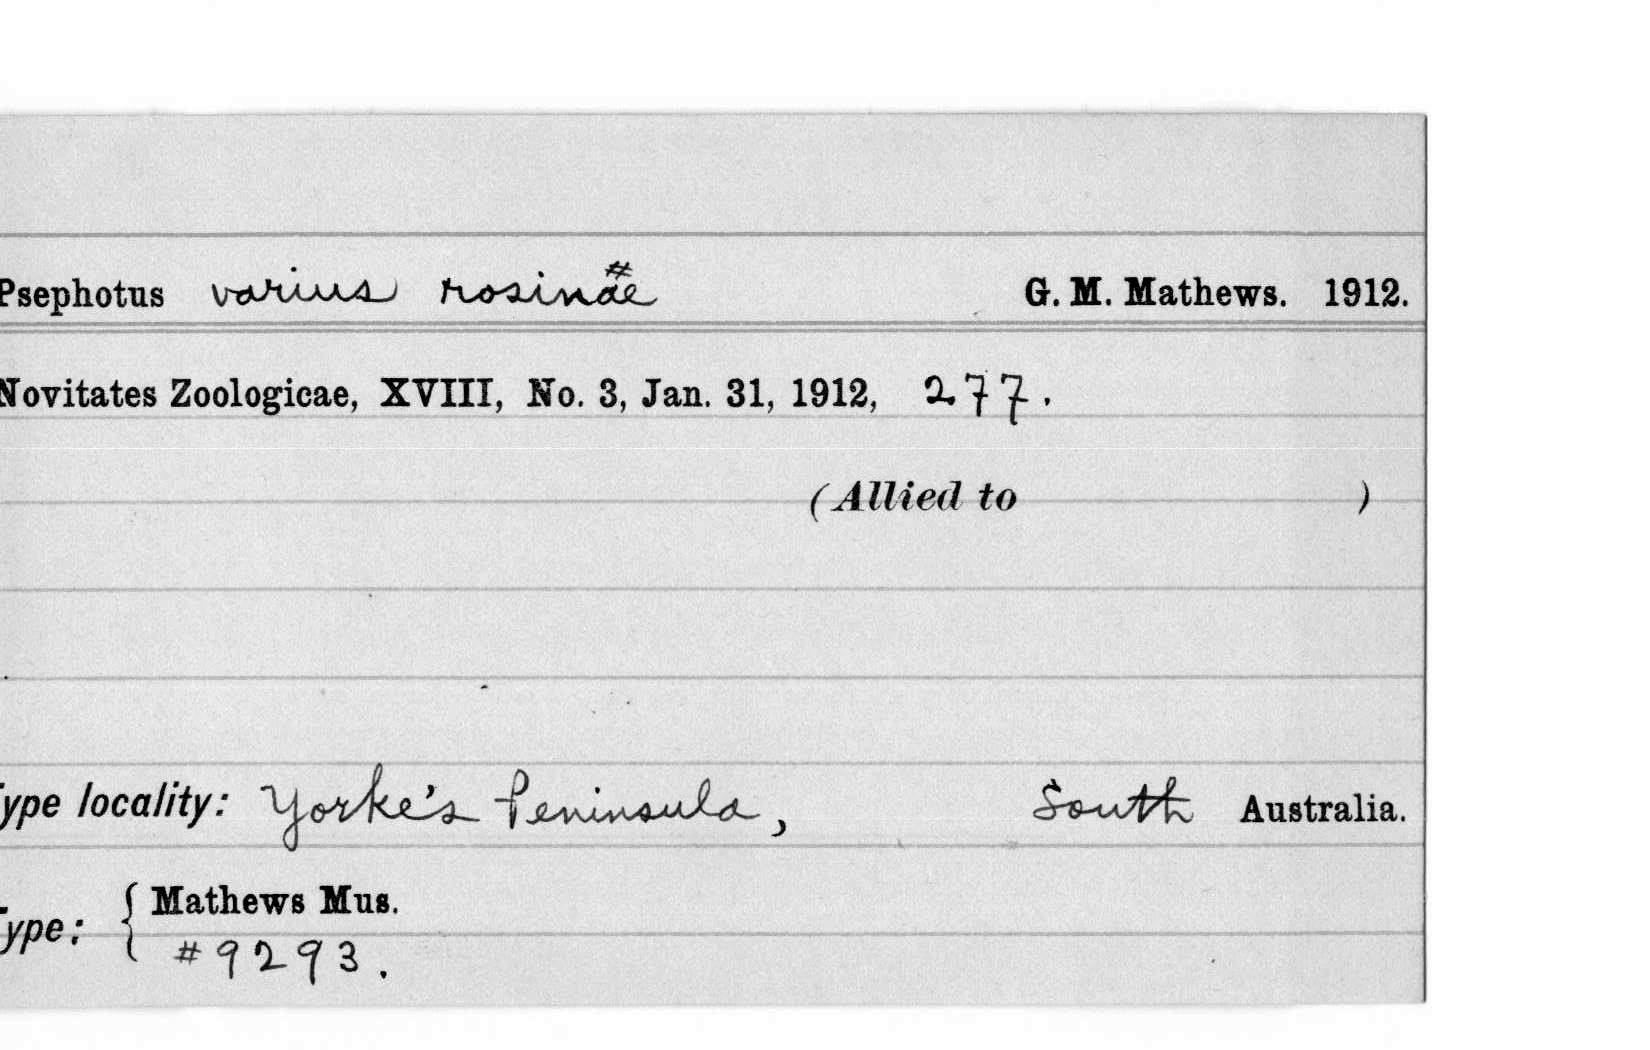 Psephotus varius rosinae # G. M. Mathews. 1912.
Novitates Zoologicae, XVIII, No. 3, Jan. 31, 1912, 277.
(Allied to )
ype locality: Yorke's Peninsula, South Australia.
ype: { Mathews Mus.
#9293.